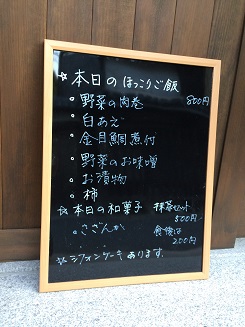 ☆ 本日のほっこりご飯
・野菜の肉巻 800円
・白あえ
・金目鯛煮付
・野菜のお味噌
・お漬物
・柿
☆ 本日の和菓子 抹茶セット
500円
・さざんか 食後は
200円
☆ シフォンケーキあります。